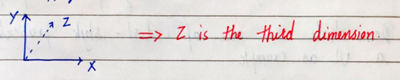 Y
Z
X
=> Z is the third dimension.